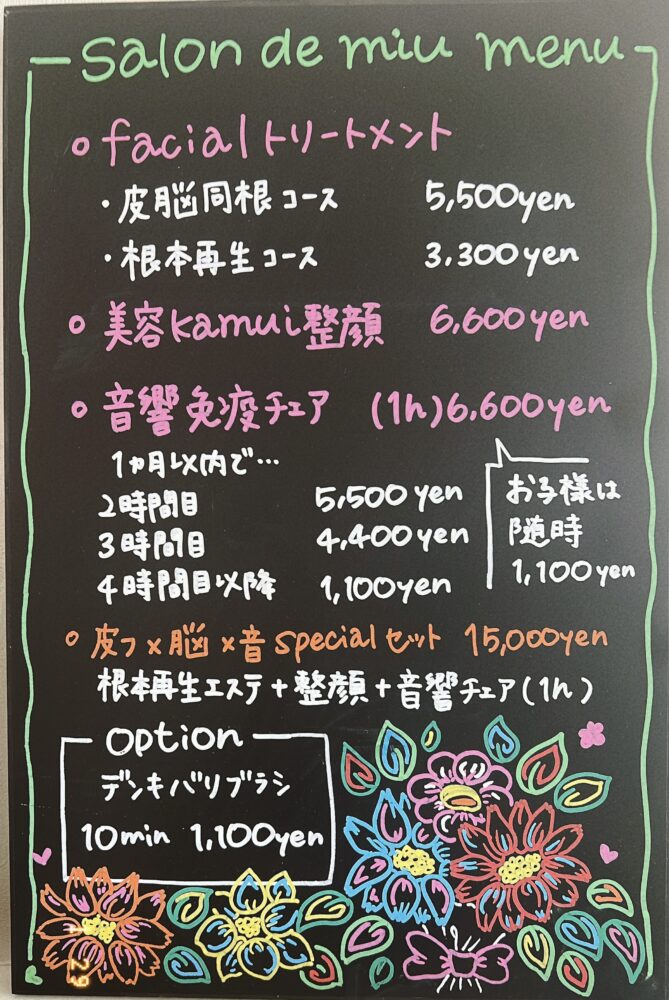 salon de miu menu
○ facialトリートメント
・皮脳同根コース 5,500yen
・根本再生コース 3,300yen
○ 美容kamui整顔 6,600yen
○ 音響免疫チェア (1h)6,600yen
1ヵ月以内で…
2時間目 5,500yen
3時間目 4,400yen
4時間目以降 1,100yen
お子様は
随時
1,100yen
○ 皮フ×脳×音specialセット 15,000yen
根本再生エステ+整顔+音響チェア(1h)
option
デンキバリブラシ
10min 1,100yen